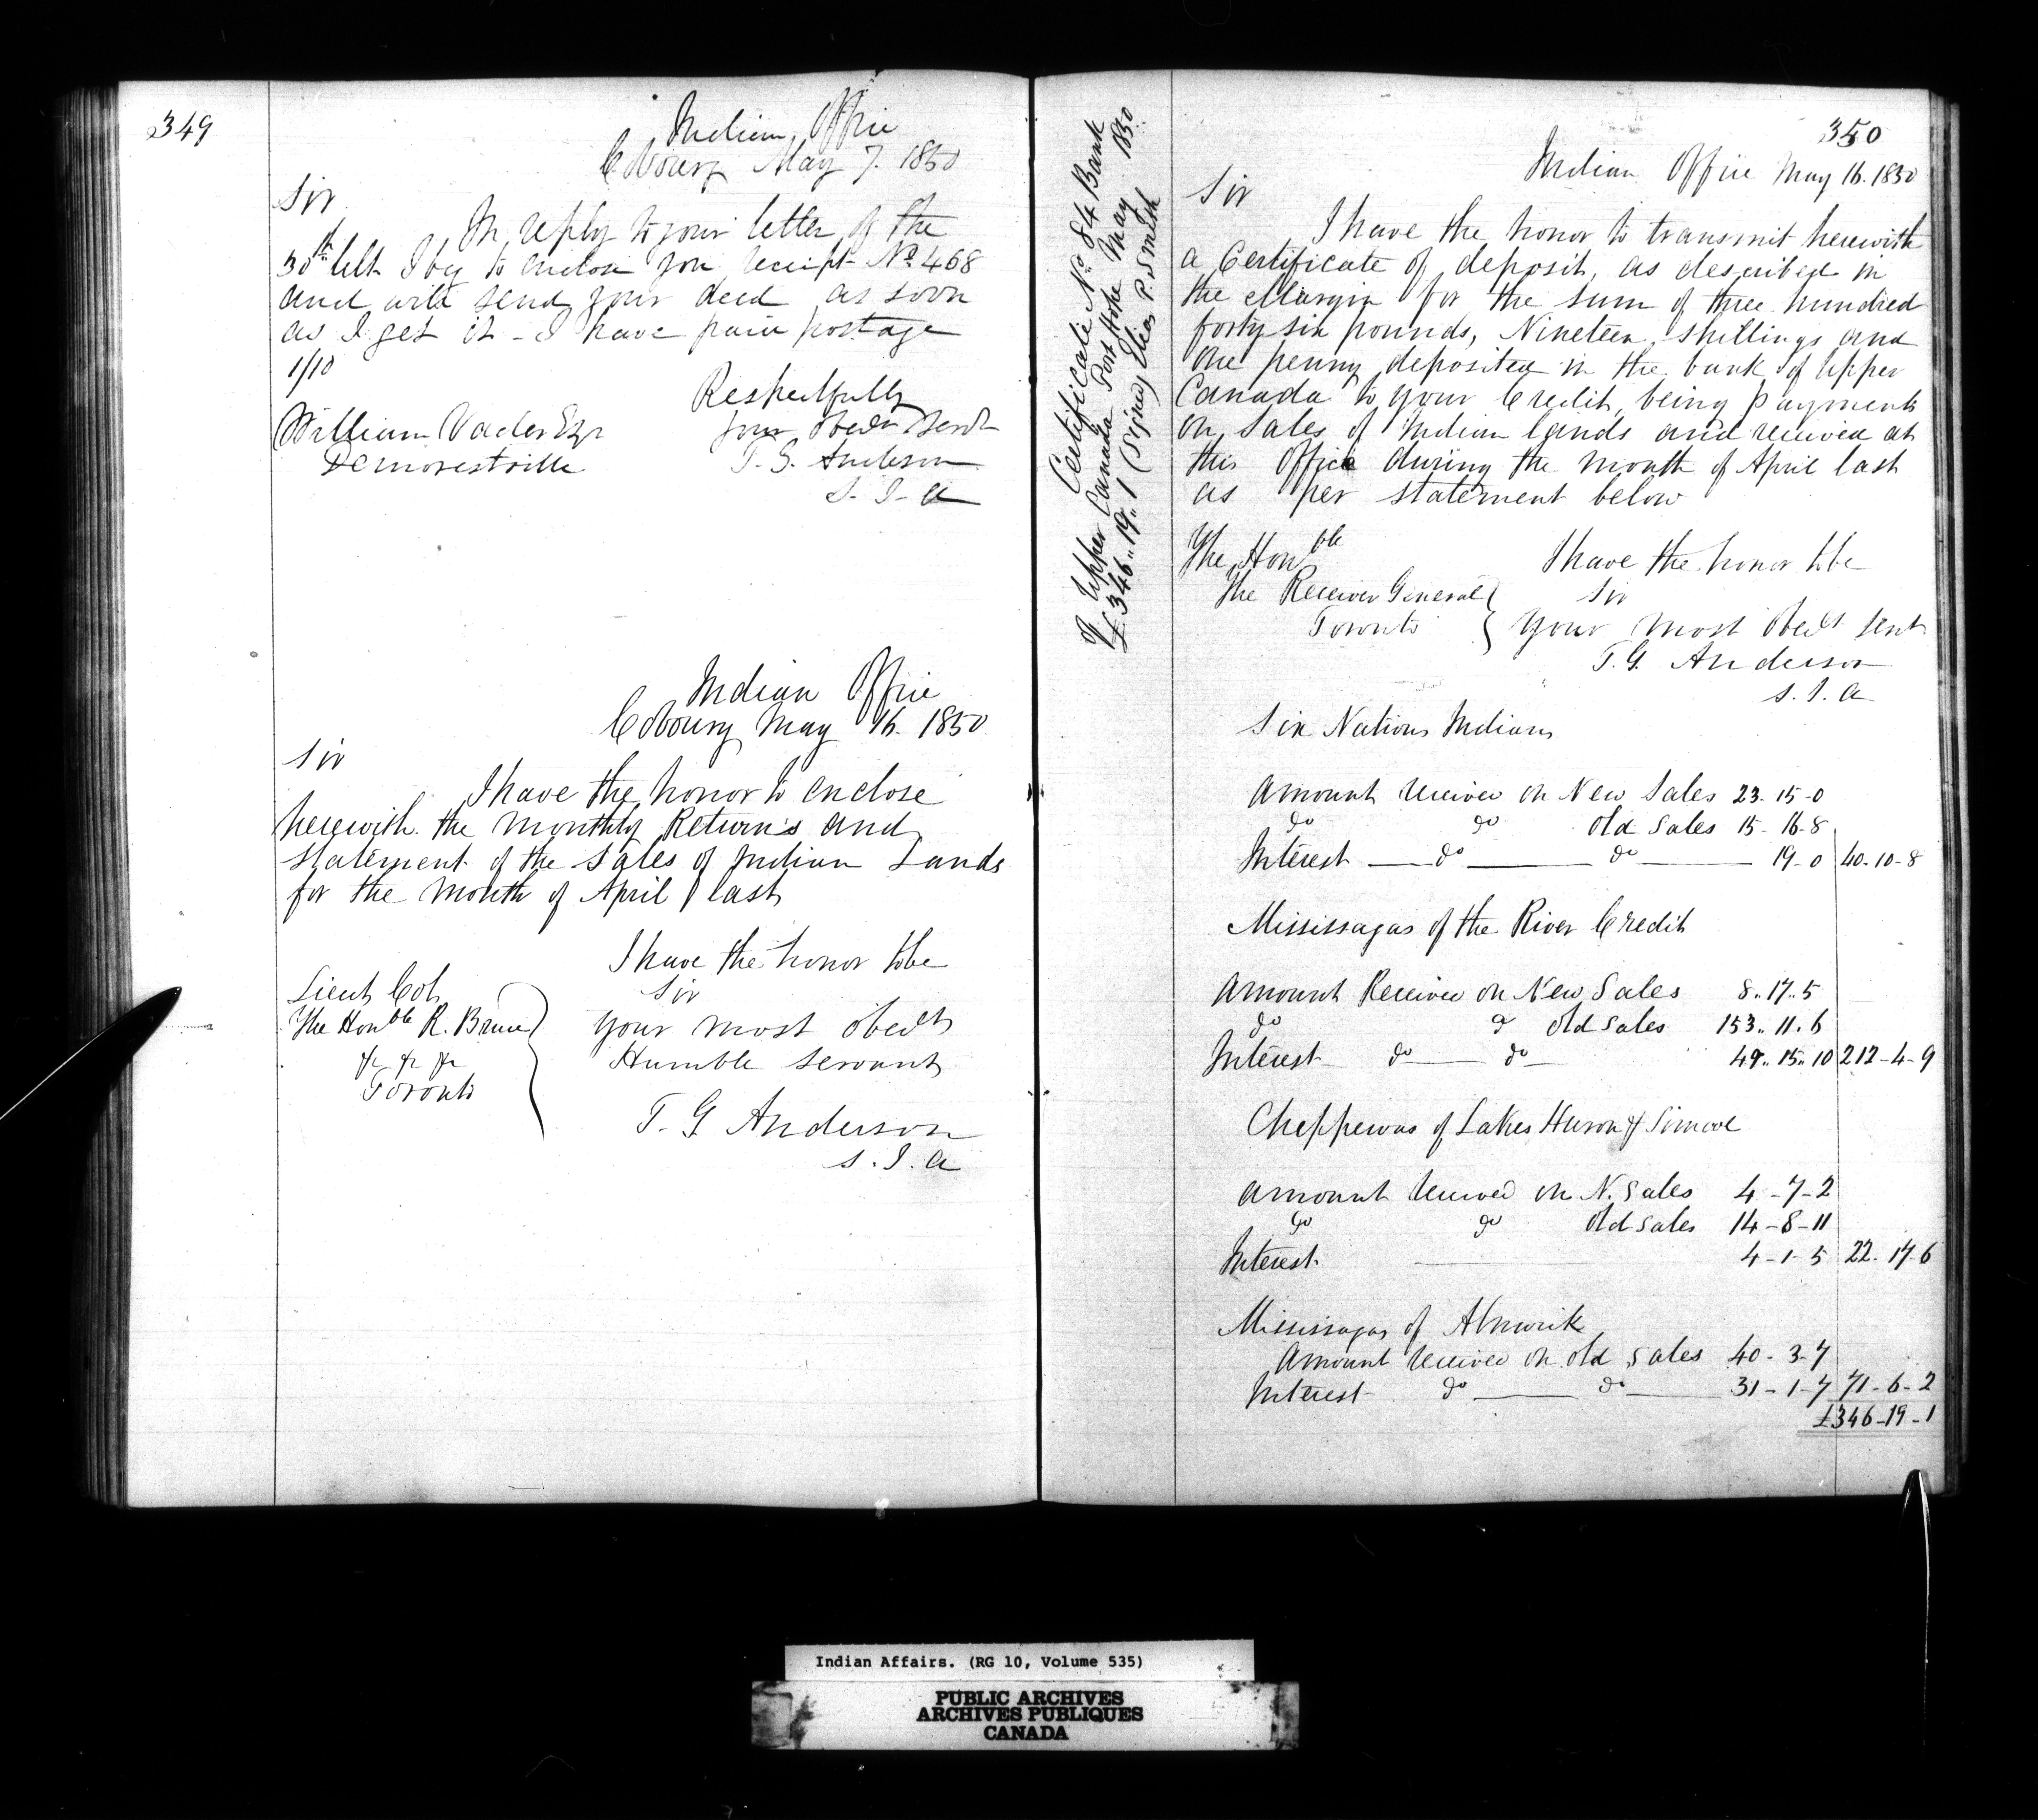 349
Indian Office
Cobourg May 7. 1850
Sir
In reply to your letter of the
30th Ult I beg to enclose you receipt No 468
and will send your deed as soon
as I get it - I have paid postage
1/10
Respectfully
your obedt Servt
T. G. Anderson
S. I. A
William Vader Esqr
Demorestville
Indian Office
Cobourg May 16. 1850
Sir
I have the honor to enclose
herewith the monthly Return's and
statement of the sales of Indian Lands
for the month of April last
I have the honor to be
Sir
your most obedt
Humble servant
T. G Anderson
S. I. A
Lieut Col
The Honble R. Bruce
&c &c &c
Toronto
350
Certificate No 84 Bank
of Upper Canada Port Hope May 1850
£346..19..1 (Signed) Elias P. Smith
Indian Office May 16. 1850
Sir
I have the honor to transmit herewith
a Certificate of deposit, as described in
the Margin for the sum of three hundred
forty six pounds, Nineteen shillings and
one penny deposited in the bank of Upper
Canada to your Credit, being payments
on sales of Indian lands and received at
this Office during the month of April last
as per statement below
The Honble
The Receiver General
Toronto
I have the honor to be
Sir
your most obedt servt
T. G. Anderson
S. I. A
Six Nations Indians
Amount received on New Sales 23. 15-0
do do old sales 15- 16-8
Interest do do 19-0 40-10-8
Mississagas of the River Credit
Amount Received on New Sales 8..17..5
do do old sales 153..11.6
Interest do do 49..15..10 212-4-9
Cheppewas of Lakes Huron & Simcoe
Amount received on N. Sales 4-7-2
do do old sales 14-8-11
Interest 4-1-5 22-17-6
Mississagas of Alnwick
Amount received on old sales 40-3-7
Interest do do 31-1-7 71-6-2
£346-19-1
Indian Affairs. (RG 10, Volume 535)
PUBLIC ARCHIVES
ARCHIVES PUBLIQUES
CANADA